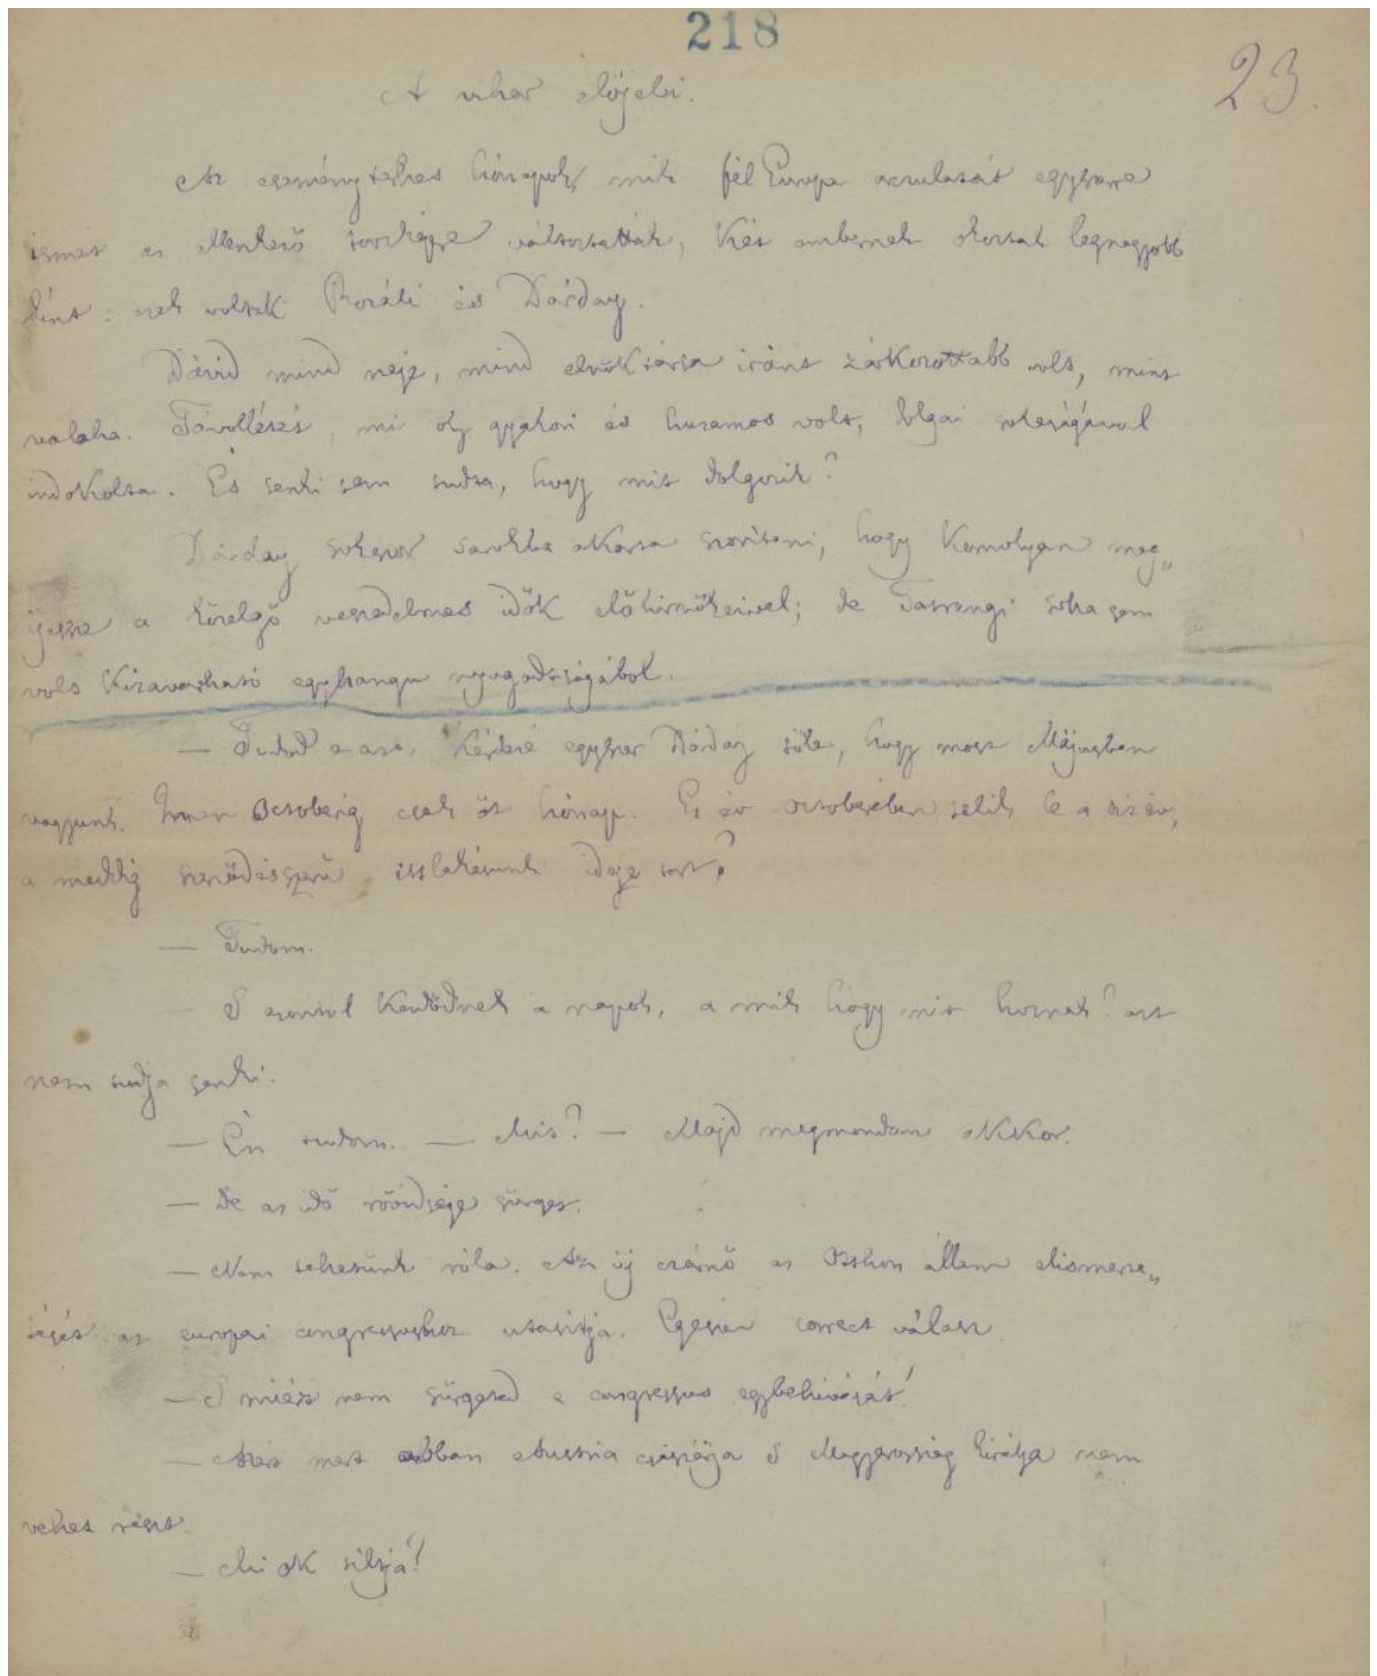 218
23.
A vihar előjelei.
Az eseményterhes hónapok, mik fél Europa arculatát egyszerre
ismét az ellenkező torzképre változtatták, két embernek okoztak legnagyobb
kínt: ezek voltak Rozáli és Dárday.
Dávid mind neje, mind elnöktársa iránt zárkozottabb volt, mint
valaha. Távollétét, mi oly gyakori és huzamos volt, dolgai sokaságával
indokolta. És senki sem tudta, hogy mit dolgozik?
Dárday sokszor sarokba akarta szorítani, hogy komolyan meg„
ijessze a közelgő veszedelmes idők előhirnökeivel; de Tatrangi soha sem
volt kizavarható egyhangu nyugodtságából.
— Tudod e azt. kérdezé egyszer Dárday tőle, hogy most Májusban
vagyunk. Innen Octoberig csak öt hónap. Ez év octoberében telik le a tiz év,
a meddig szerződésszerü ittlakásunk ideje tart?
— Tudom.
S azontul kezdődnek a napok, a mik hogy mit hoznak? azt
nem tudja senki.
— Én tudom. — Mit? — Majd megmondom akkor.
— De az idő rövidsége sürget.
— Nem tehetünk róla. Az új czárnő az Otthon állam elismerte„
tését az europai congressushoz utasítja. Egészen correct válasz.
— S miért nem sürgeted e congressus egybehivását!
— Azért mert abban Austria császárja s Magyarország királya nem
vehet részt.
— Mi ok tiltja!